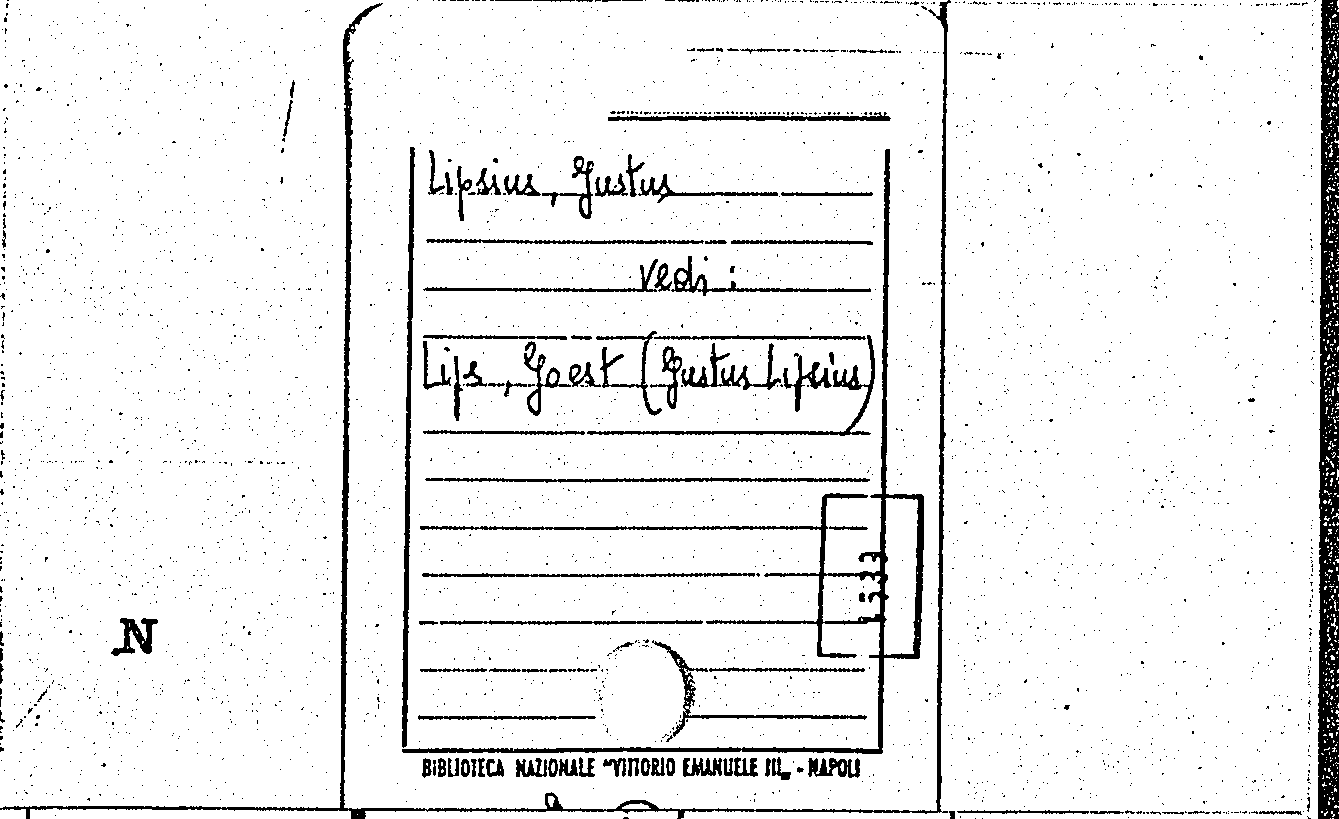 Lipsius, Justus
vedi:
Lips, Joest (Justus Lipsius)
N
BIBLIOTECA NAZIONALE "VITTORIO EMANUELE III„ - NAPOLI